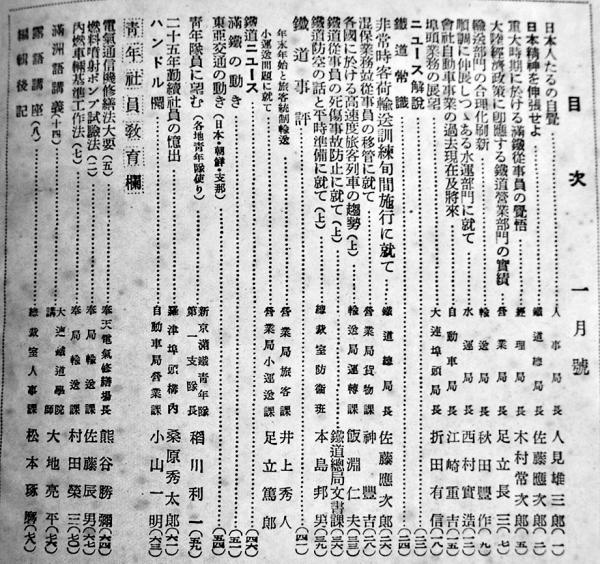 目次 一月號
日本人たるの自覺……人事局長 人見雄三郎(一)
日本精神を伸張せよ……鐵道總局長 佐藤應次郎(二)
重大時期に於ける滿鐵從事員の覺悟……經理局長 木村常次郎(五)
大陸經濟政策に即應する鐵道營業部門の實績……營業局長 足立長三(七)
輸送部門の合理化刷新……輸送局長 秋田豐作(九)
順調に伸展しつゝある水運部門に就て……水運局長 西村實造(一二)
會社自動車事業の過去現在及將來……自動車局長 江崎重吉(一五)
埠頭業務の展望……大連埠頭局長 折田有信(一八)
ニュース解說……(二三)
鐵道常識……(二四)
非常時客荷輸送訓練旬間施行に就て……鐵道總局長 佐藤應次郎(二六)
混保業務竝從事員の移管に就て……營業局貨物課 神豐吉(二八)
各國に於ける高速度旅客列車の趨勢(上)……輸送局運轉課 飯淵仁夫(三)
鐵道從事員の死傷事故防止に就て(上)……鐵道總局文書課(三六)
鐵道防空の話と平時準備に就て(上)……總裁室防衛班 本島邦男(三九)
鐵道時評……(四一)
年末年始と旅客統制輸送……營業局旅客課 井上秀人
小運送問題に就て……營業局小運送課 足立篤郎
鐵道ニュース……(四六)
滿鐵の動き……(五一)
東亞交通の動き(日本・朝鮮・支那)……(五四)
青年隊員に望む(各地青年隊便り)……新京滿鐵青年隊第一支隊長 稻川利一(五九)
二十五年勤續社員の憶出……羅津埠頭構內 桑原秀太郎(六一)
ハンドル欄……自動車局營業課 小山一明(六三)
青年社員敎育欄
電氣通信機修繕法大要(五)……奉天電氣修繕場長 熊谷勝彌(六四)
燃料噴射ポンプ試驗法(二)……奉局輸送課 佐藤辰男(六七)
內燃車輛基準工作法(七)……奉局輸送課 村田榮三(七〇)
滿洲語講義(十四)……大連鐵道學院講師 大地亮平(七六)
露語講座(八)……總裁室人事課 松本琢磨(七八)
編輯後記